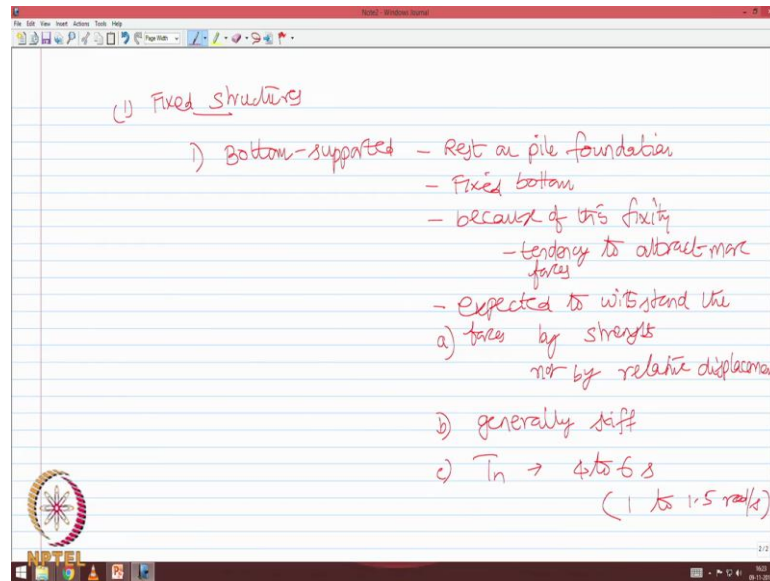 Note2 - Windows Journal
File Edit View Insert Actions Tools Help
Page Width
(1) Fixed structures
1) Bottom-supported - Rest on pile foundation
- Fixed bottom
- because of this fixity
- tendency to attract more
forces
- expected to withstand the
a) forces by strength
not by relative displacement
b) generally stiff
c) Tn → 4 to 6 s
(1 to 1.5 rad/s)
2/2
NPTEL
16:23